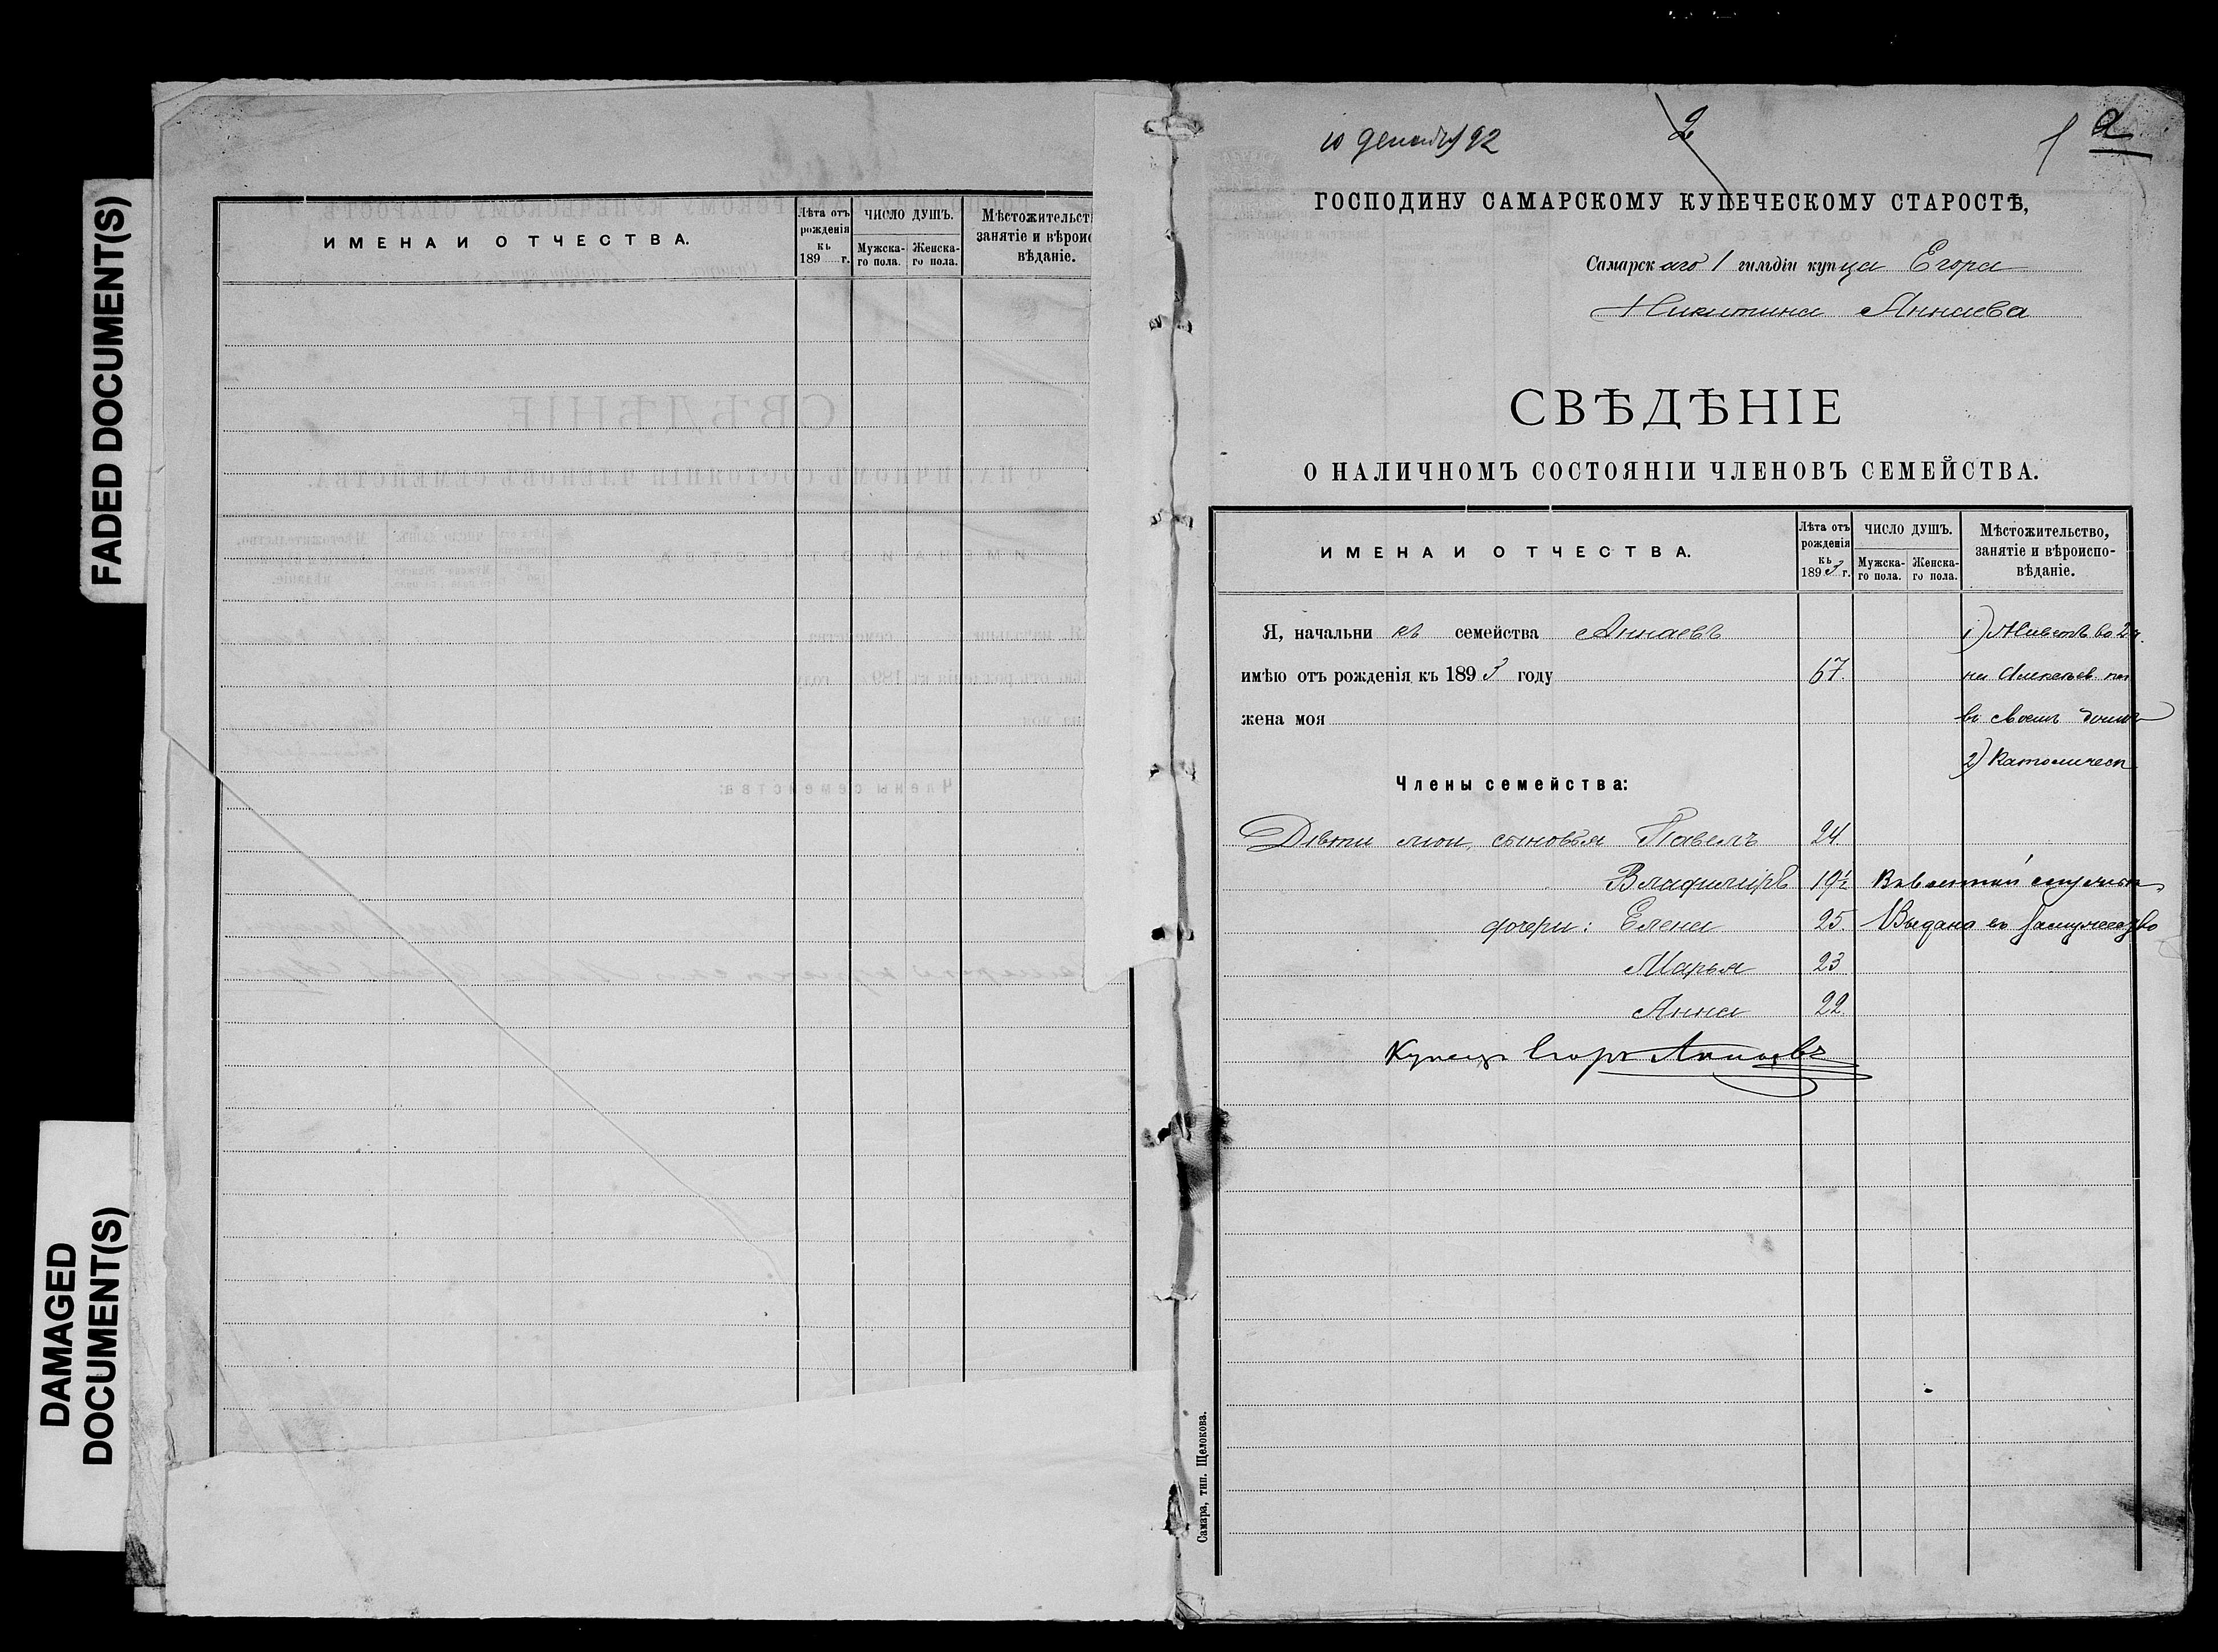 FADED DOCUMENT(S)
DAMAGED
DOCUMENT(S)
ИМЕНА И ОТЧЕСТВА.
Лѣта отъ рожденія къ 189 г.
ЧИСЛО ДУШЪ.
Мужска-го пола.
Женска-го пола.
Мѣстожительст
занятіе и вѣроис
вѣданіе.
10 декабря 92
2
1 а
ГОСПОДИНУ САМАРСКОМУ КУПЕЧЕСКОМУ СТАРОСТѢ,
Самарскаго 1 гильдіи купца Егора
Никитина Аннаева
СВѢДѢНІЕ
О НАЛИЧНОМЪ СОСТОЯНІИ ЧЛЕНОВЪ СЕМЕЙСТВА.
ИМЕНА И ОТЧЕСТВА.
Лѣта отъ рожденія къ 1893 г.
ЧИСЛО ДУШЪ.
Мужска-го пола.
Женска-го пола.
Мѣстожительство,
занятіе и вѣроиспо-
вѣданіе.
Я, начальникъ семейства Аннаевъ 1) Живетъ во 2 ч.
имѣю отъ рожденія къ 1893 году 67. на
жена моя въ своемъ домѣ
2) Католическ
Члены семейства:
Дѣти мои, сыновья Павелъ 24.
Владиміръ 19½
дочери: Елена 25. Выдана въ замужество
Марья 23
Анна 22.
Купецъ Егоръ Аннаевъ
Самара, тип. Щелокова.